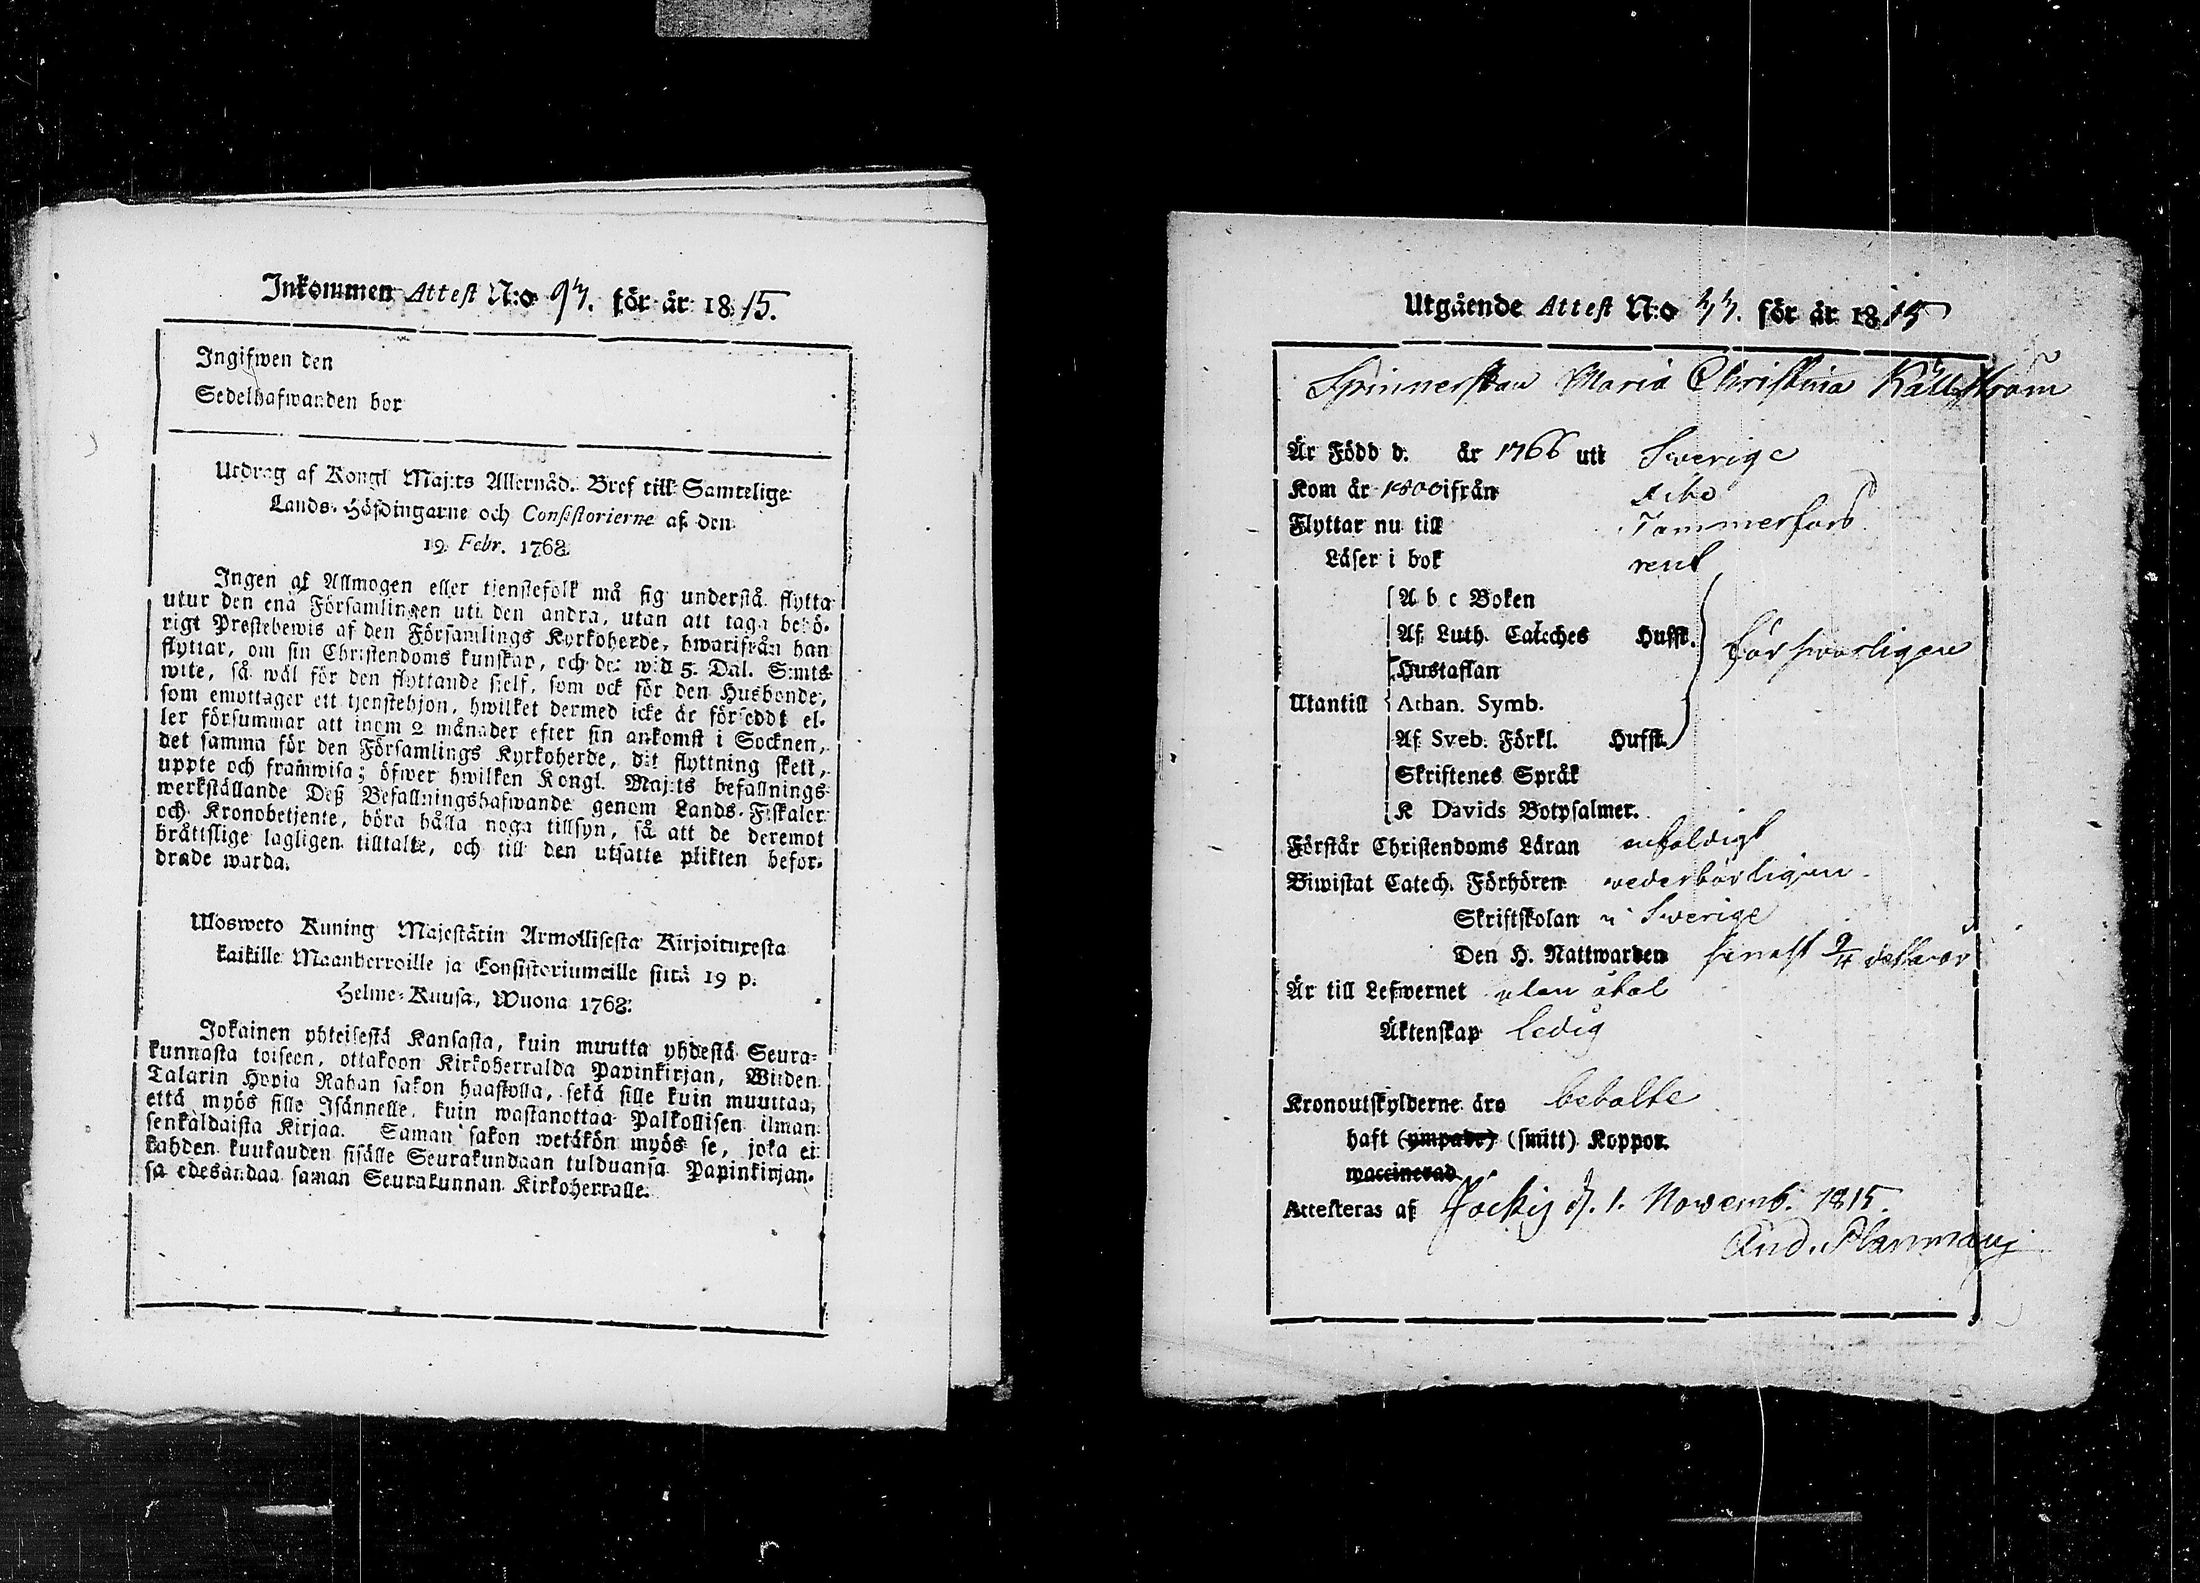 Inkommen Attest N:o 93. för år 1815.
Ingifwen den
Sedelhafwanden bor
Utdrag af Kongl Maj:ts Allernåd. Bref till Samtelige
Lands-Höfdingarne och Consistorierne af den
19. Febr. 1768.
Ingen af Allmogen eller tjenstefolk må sig understå flytta
utur den ena Församlingen uti den andra, utan att taga behö-
rigt Prestebewis af den Församlings Kyrkoherde, hwarifrån han
flyttar, om sin Christendoms kunskap, och det wid 5. Dal. S:mts
wite, så wäl för den flyttande sjelf, som ock för den Husbonde,
som emottager ett tjenstehjon, hwilket dermed icke är försedt el-
ler försummar att inom 2 månader efter sin ankomst i Socknen,
det samma för den Församlings Kyrkoherde, dit flyttning skett,
uppte och framwisa; öfwer hwilken Kongl. Maj:ts befallnings
werkställande Deß Befallningshafwande genom Lands-Fiskaler
och Kronobetjente, böra hålla noga tillsyn, så att de deremot
bråttslige lagligen tilltalte, och till den utsatte plikten befor-
drade warda.
Ulosweto Kuning Majestätin Armollisesta Kirjoituxesta
kaikille Maanherroille ja Consistoriumeille siitä 19 p.
Helme-Kuusa, Wuona 1768.
Jokainen yhteisestä Kansasta, kuin muutta yhdestä Seura-
kunnasta toiseen, ottakoon Kirkoherralda Papinkirjan, Wiiden
Talarin Hopia Rahan sakon haastolla, sekä sille kuin muuttaa,
että myös sille Isännelle, kuin wastanottaa Palkollisen ilman
senkaldaista Kirjaa. Saman sakon wetäkön myös se, joka ei
kahden kuukauden sisälle Seurakundaan tulduansa Papinkirjan-
sa edesandaa saman Seurakunnan Kirkoherralle.
Utgående Attest N:o 33. för år 1815
Spinnerskan Maria Christina Källström
Är Född d. år 1766 uti Swerige
Kom år 1800 ifrån Åbo
Flyttar nu till Tammerfors
Läser i bok rent
A b c Boken
Af Luth. Cateches Hufst.
Hustaflan
Utantill Athan. Symb. försvarligen
Af Sveb. Förkl. Hufst.
Skriftenes Språk
K Davids Botpsalmer.
Förstår Christendoms Läran enfaldigt
Biwistat Catech. Förhören wederbörligen
Skriftskolan i Swerige
Den H. Nattwarden senast 9/4 detta år
Är till Lefwernet utan åtal
Äktenskap ledig
Kronoutskylderne äro betalte
haft (ympade) (smitt) Koppor.
waccinerad
Attesteras af Jockis d. 1. Novemb. 1815.
And. Planman